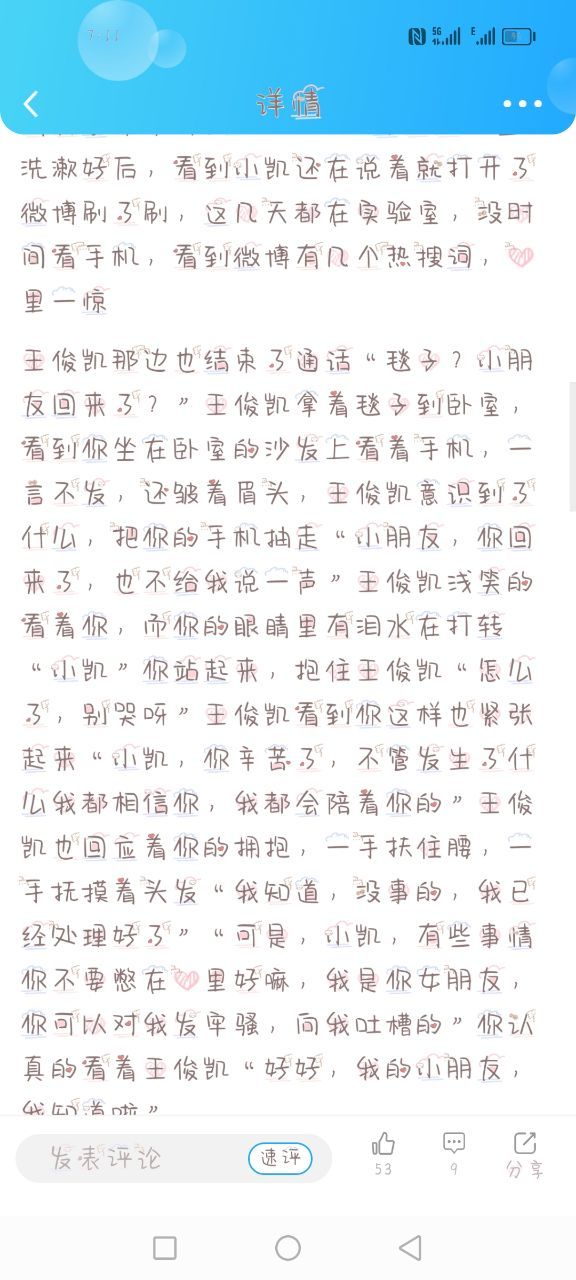 7:11
5G
E
详情
洗漱好后，看到小凯还在说着就打开了
微博刷了刷，这几天都在实验室，没时
间看手机，看到微博有几个热搜词，
里一惊
王俊凯那边也结束了通话“毯子？小朋
友回来了？”王俊凯拿着毯子到卧室，
看到你坐在卧室的沙发上看着手机，一
言不发，还皱着眉头，王俊凯意识到了
什么，把你的手机抽走“小朋友，你回
来了，也不给我说一声”王俊凯浅笑的
看着你，而你的眼睛里有泪水在打转
“小凯”你站起来，抱住王俊凯“怎么
了，别哭呀”王俊凯看到你这样也紧张
起来“小凯，你辛苦了，不管发生了什
么我都相信你，我都会陪着你的”王俊
凯也回应着你的拥抱，一手扶住腰，一
手抚摸着头发“我知道，没事的，我已
经处理好了”“可是，小凯，有些事情
你不要憋在里好嘛，我是你女朋友，
你可以对我发牢骚，向我吐槽的”你认
真的看着王俊凯“好好，我的小朋友，
我知道啦”
发表评论
速评
53
9
分享